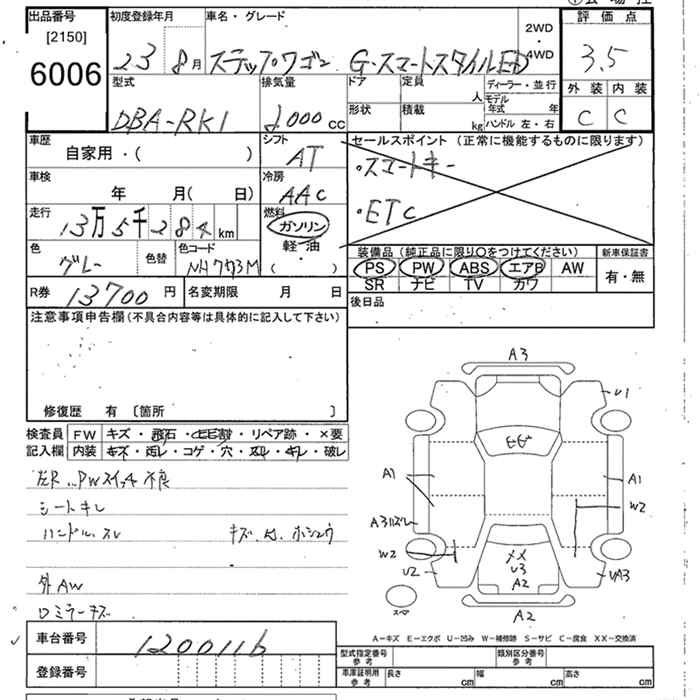 出品番号
[2150]
6006
初度登録年月
23 8月
車名・グレード
ステップワゴン G・スマートスタイルED
2WD
4WD
評価点
3.5
外装 内装
C C
型式
DBA-RK1
排気量
2000 cc
ドア
定員
人
形状
積載
kg
ディーラー・並行
モデル年式 年
ハンドル 左・右
車歴
自家用・( )
シフト
AT
車検
年 月( 日)
冷房
AAC
走行
13万5千284km
燃料
ガソリン
軽・油
( )
色
グレー
色替
色コード
NH773M
セールスポイント(正常に機能するものに限ります)
・スマートキー
・ETC
装備品(純正品に限り○をつけてください)
PS PW ABS エアB AW
SR ナビ TV カワ
新車保証書
有・無
R券 13700円
名変期限 月 日
後日品
注意事項申告欄(不具合内容等は具体的に記入して下さい)
修復歴 有 〔箇所 〕
検査員記入欄
FW キズ・飛石・ヒビ割・リペア跡・×要
内装 キズ・汚レ・コゲ・穴・スレ・キレ・破レ
左R PWスイッチ不良
シートキレ
ハンドルスレ
キズ 凹 ホシュウ
外AW
ロミラーキズ
車台番号
1200116
登録番号
A3
U1
ヒビ
A1
A1
W2
A3ハズレ
W2
U2
XX
U3
A2
UA3
A2
スマ
A-キズ E-エクボ U-凹み W-補修跡 S-サビ C-腐食 XX-交換済
型式指定番号
参考
類別区分番号
参考
車庫証明用
参考
長さ cm
幅 cm
高さ cm